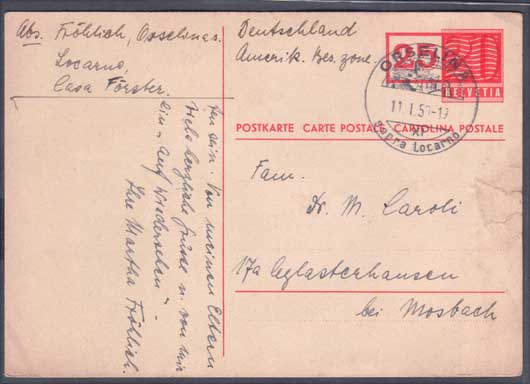 Abs. Fröhlich, Orselina s.
Locarno,
Casa Förster.
Deutschland
Amerik. Bes. zone.
25
HELVETIA
ORSELINA
11.I.50-19
XI
sopra Locarno
POSTKARTE CARTE POSTALE CARTOLINA POSTALE
Fam.
Dr. M. Caroli
17a Aglasterhausen
bei Mosbach
ten sein. Von meinen Eltern
viele herzliche Grüsse u. von mir
ein „auf Wiedersehen“
Ihre Martha Fröhlich.